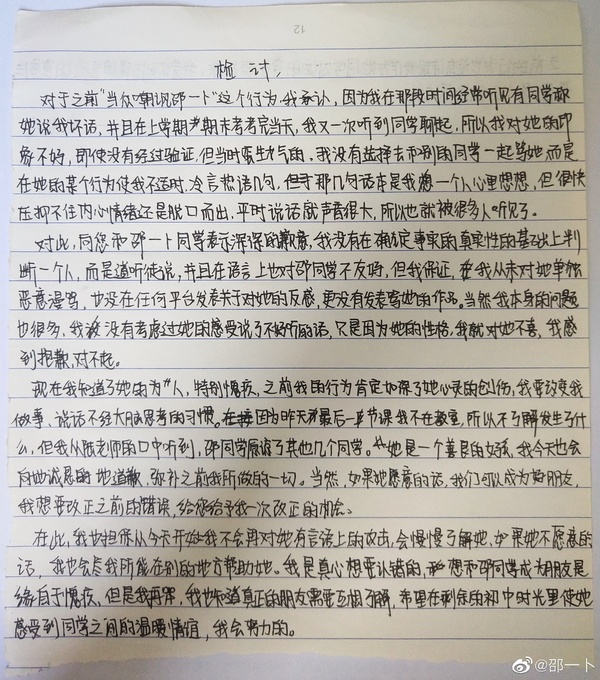 12
检讨
对于之前“当众嘲讽邵一卜”这个行为,我承认,因为我在那段时间经常听见有同学称
她说我坏话,并且在上学期期末考考完当天,我又一次听到同学聊起,所以我对她的印
象不好,即使没有经过验证,但当时蛮生气的。我没有选择去和别的同学一起骂她而是
在她的某个行为使我不适时,冷言热语几句,但于那几句话本是我想一个人心里想想,但很快
压抑不住内心情绪还是脱口而出,平时说话就声音很大,所以也就被很多人听见了。
对此,向您和邵一卜同学表示深深的歉意,我没有在确定事实的真实性的基础上判
断一个人,而是道听徒说,并且在语言上也对邵同学不友好,但我保证,我从未对她单独
恶意谩骂,也没在任何平台发表关于对她的反感,更没有发表骂她的作品。当然我本身的问题
也很多,我没有考虑过她的感受说了不好听的话,只是因为她的性格,我就对她不喜,我感
到抱歉,对不起。
现在我知道了她的为人,特别愧疚,之前我的行为肯定加深了她心灵的创伤,我要改变我
做事、说话不经大脑思考的习惯。因为昨天最后一节课我不在教室,所以不了解发生了什
么,但我从张老师的口中听到,邵同学原谅了其他几个同学。她是一个善良的女孩,我今天也会
向她诚恳地道歉,弥补之前我所做的一切。当然,如果她愿意的话,我们可以成为好朋友,
我想要改正之前的错误,给您给予我一次改正的机会。
在此,我也担保从今天开始我不会再对她有言语上的攻击,会慢慢了解她,如果她不愿意的
话,我也会尽我所能在别的地方帮助她。我是真心想要认错的,想和邵同学成为朋友是
缘自于愧疚,但是我再写,我也知道真正的朋友需要互相了解,希望在剩余的初中时光里使她
感受到同学之间的温暖情谊,我会努力的。
@邵一卜